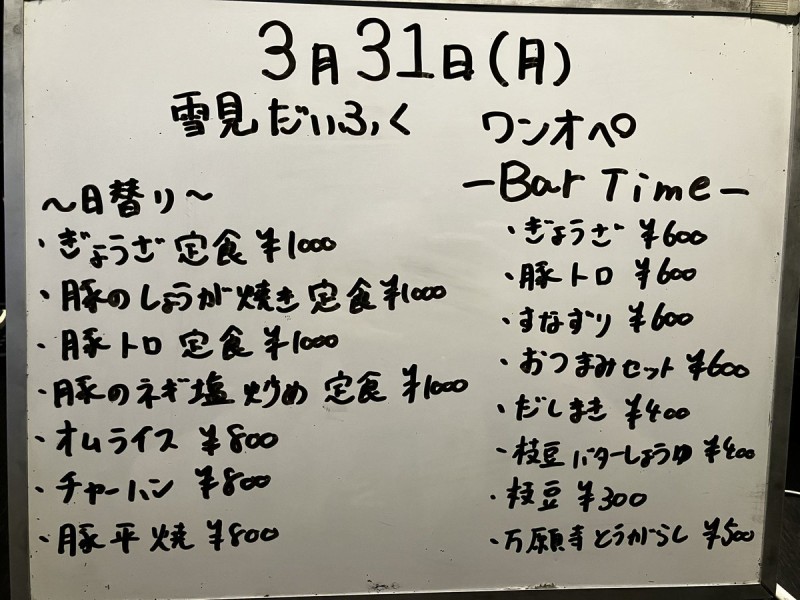 3月31日(月)
雪見だいふく
ワンオペ
〜日替り〜
・ぎょうざ定食 ¥1000
・豚のしょうが焼き定食 ¥1000
・豚トロ定食 ¥1000
・豚のネギ塩炒め定食 ¥1000
・オムライス ¥800
・チャーハン ¥800
・豚平焼 ¥800
-Bar Time-
・ぎょうざ ¥600
・豚トロ ¥600
・すなずり ¥600
・おつまみセット ¥600
・だしまき ¥400
・枝豆バターしょうゆ ¥400
・枝豆 ¥300
・万願寺とうがらし ¥500